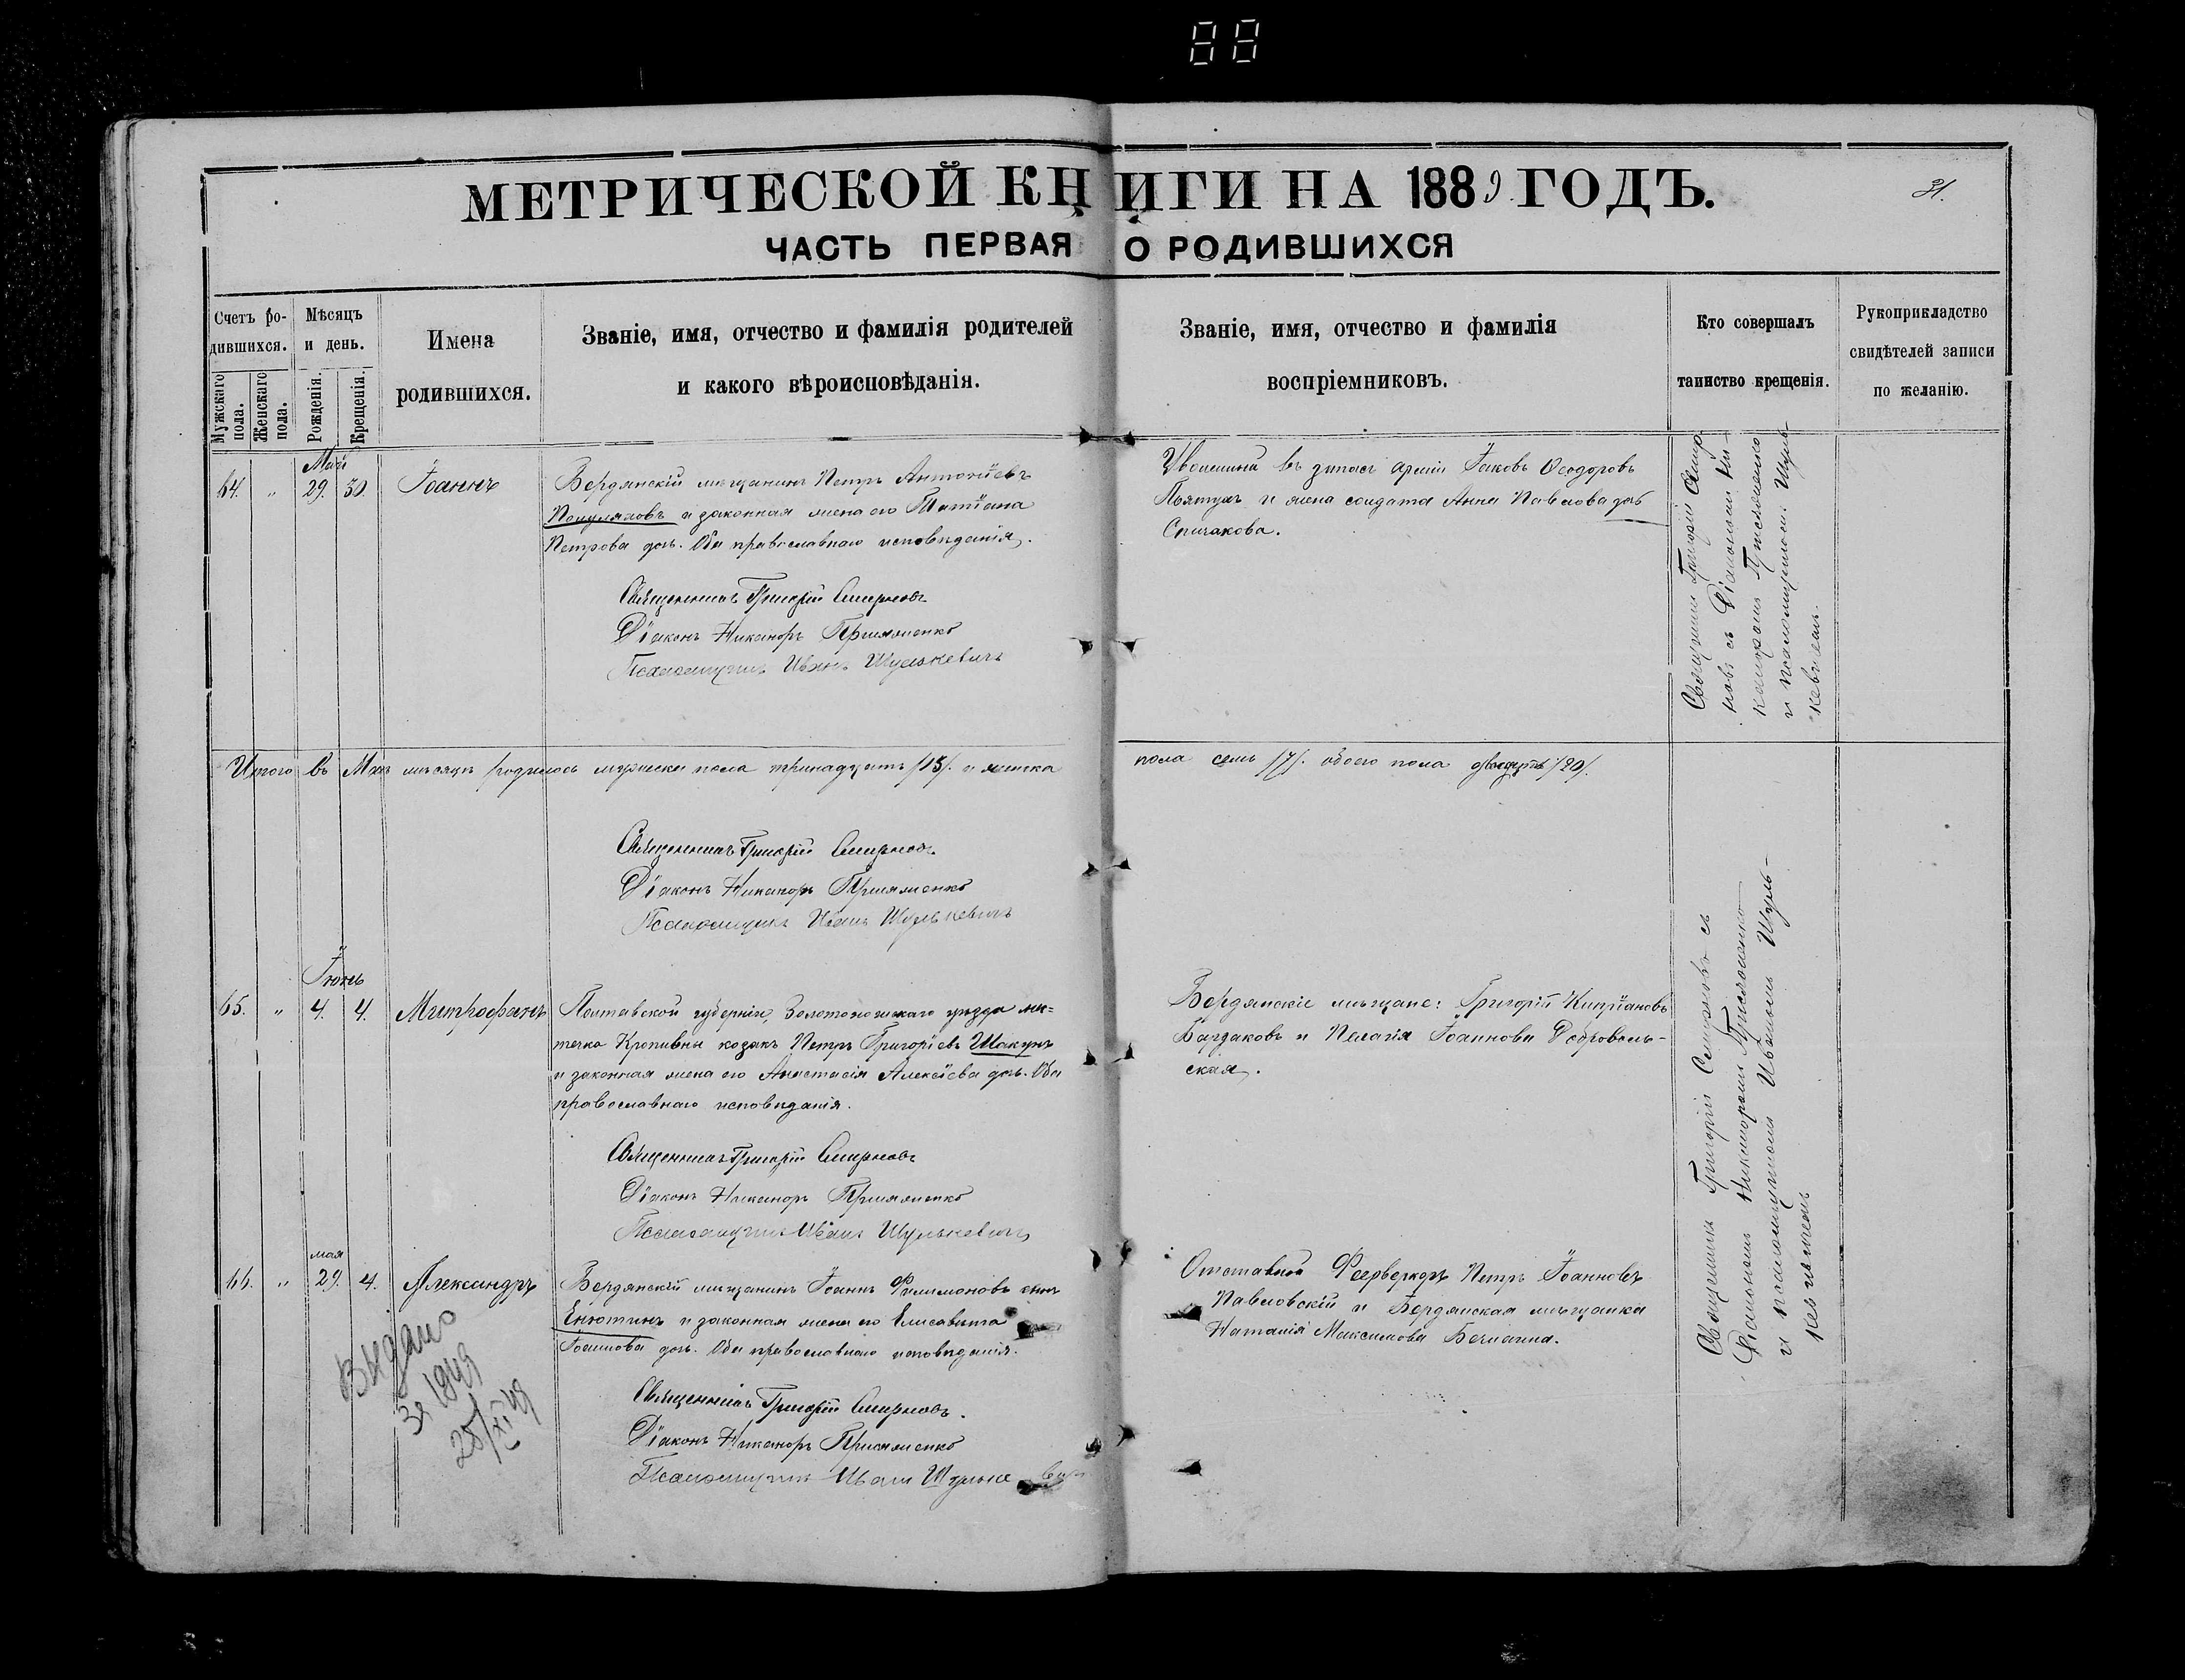 МЕТРИЧЕСКОЙ КНИГИ НА 1889 ГОДЪ.
31.
ЧАСТЬ ПЕРВАЯ О РОДИВШИХСЯ
Счетъ ро-
дившихся.
Мужскаго пола.
Женскаго пола.
Мѣсяцъ
и день.
Рожденія.
Крещенія.
Имена
родившихся.
Званіе, имя, отчество и фамилія родителей
и какого вѣроисповѣданія.
Званіе, имя, отчество и фамилія
воспріемниковъ.
Кто совершалъ
таинство крещенія.
Рукоприкладство
свидѣтелей записи
по желанію.
Май
64. " 29. 30. Іоаннъ
Бердянскій мѣщанинъ Петръ Антоніевъ
и законная жена его Татіана
Петрова дочь. Оба православнаго исповѣданія.
Священникъ Григорій Смирновъ
Діаконъ Никаноръ Прислоненко
Псаломщикъ Иванъ Шулькевичъ
въ запасъ арміи Іаковъ Ѳеодоровъ
и жена солдата Анна Павлова дочь
Спичакова.
Священникъ Григорій Смир-
новъ съ Діакономъ Ни-
каноромъ Прислоненко
и псаломщиком. Шуль-
кевичемъ.
Итого въ Маѣ мѣсяцѣ родилось мужска пола тринадцать /13/. и женска
пола семь /7/. обоего пола двадцать /20/.
Священникъ Григорій Смирновъ.
Діаконъ Никаноръ Прислоненко
Псаломщикъ Иванъ Шулькевичъ
Іюнь
65. " 4. 4. Митрофанъ
Полтавской губерніи, Золотоношскаго уѣзда мѣ=
течка Кропивны козакъ Петръ Григоріевъ Шакунъ
и законная жена его Анастасія Алексіева дочь. Оба
православнаго исповѣданія.
Священникъ Григорій Смирновъ
Діаконъ Никаноръ Прислоненко
Псаломщикъ Иванъ Шулькевичъ
Бердянскіе мѣщане: Григорій Кипріановъ
Бардаковъ и Пелагія Іоаннова Доброволь-
ская.
Священникъ Григорій Смирновъ съ
Діакономъ Никаноромъ Прислоненко
и псаломщикомъ Иваномъ Шуль-
кевичемъ
мая
66. " 29. 4. Александръ
Бердянскій мѣщанинъ Іоаннъ Филимоновъ сынъ
Енютинъ и законная жена его Елисавета
Іоаннова дочь. Оба православнаго исповѣданія.
Священникъ Григорій Смирновъ.
Діаконъ Никаноръ Прислоненко
Псаломщикъ Иванъ Шулькевичъ
Отставной Фейерверкеръ Петръ Іоанновъ
Павловскій и Бердянская мѣщанка
Наталія Максимова
Видано
25/XI 49